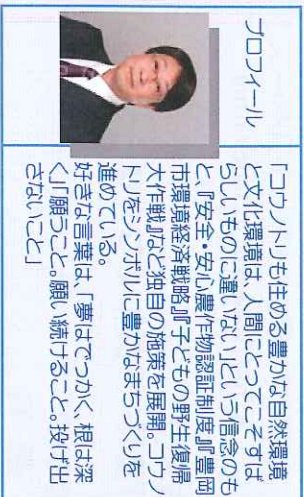 プロフィール
「コウノトリも住める豊かな自然環境
と文化環境は、人間にとってこそすば
らしいものに違いない」という信念のも
と、『安全・安心農作物認証制度』『豊岡
市環境経済戦略』『子どもの野生復帰
大作戦』など独自の施策を展開。コウノ
トリをシンボルに豊かなまちづくりを
進めている。
好きな言葉は、「夢はでっかく、根は深
く」「願うこと。願い続けること。投げ出
さないこと」